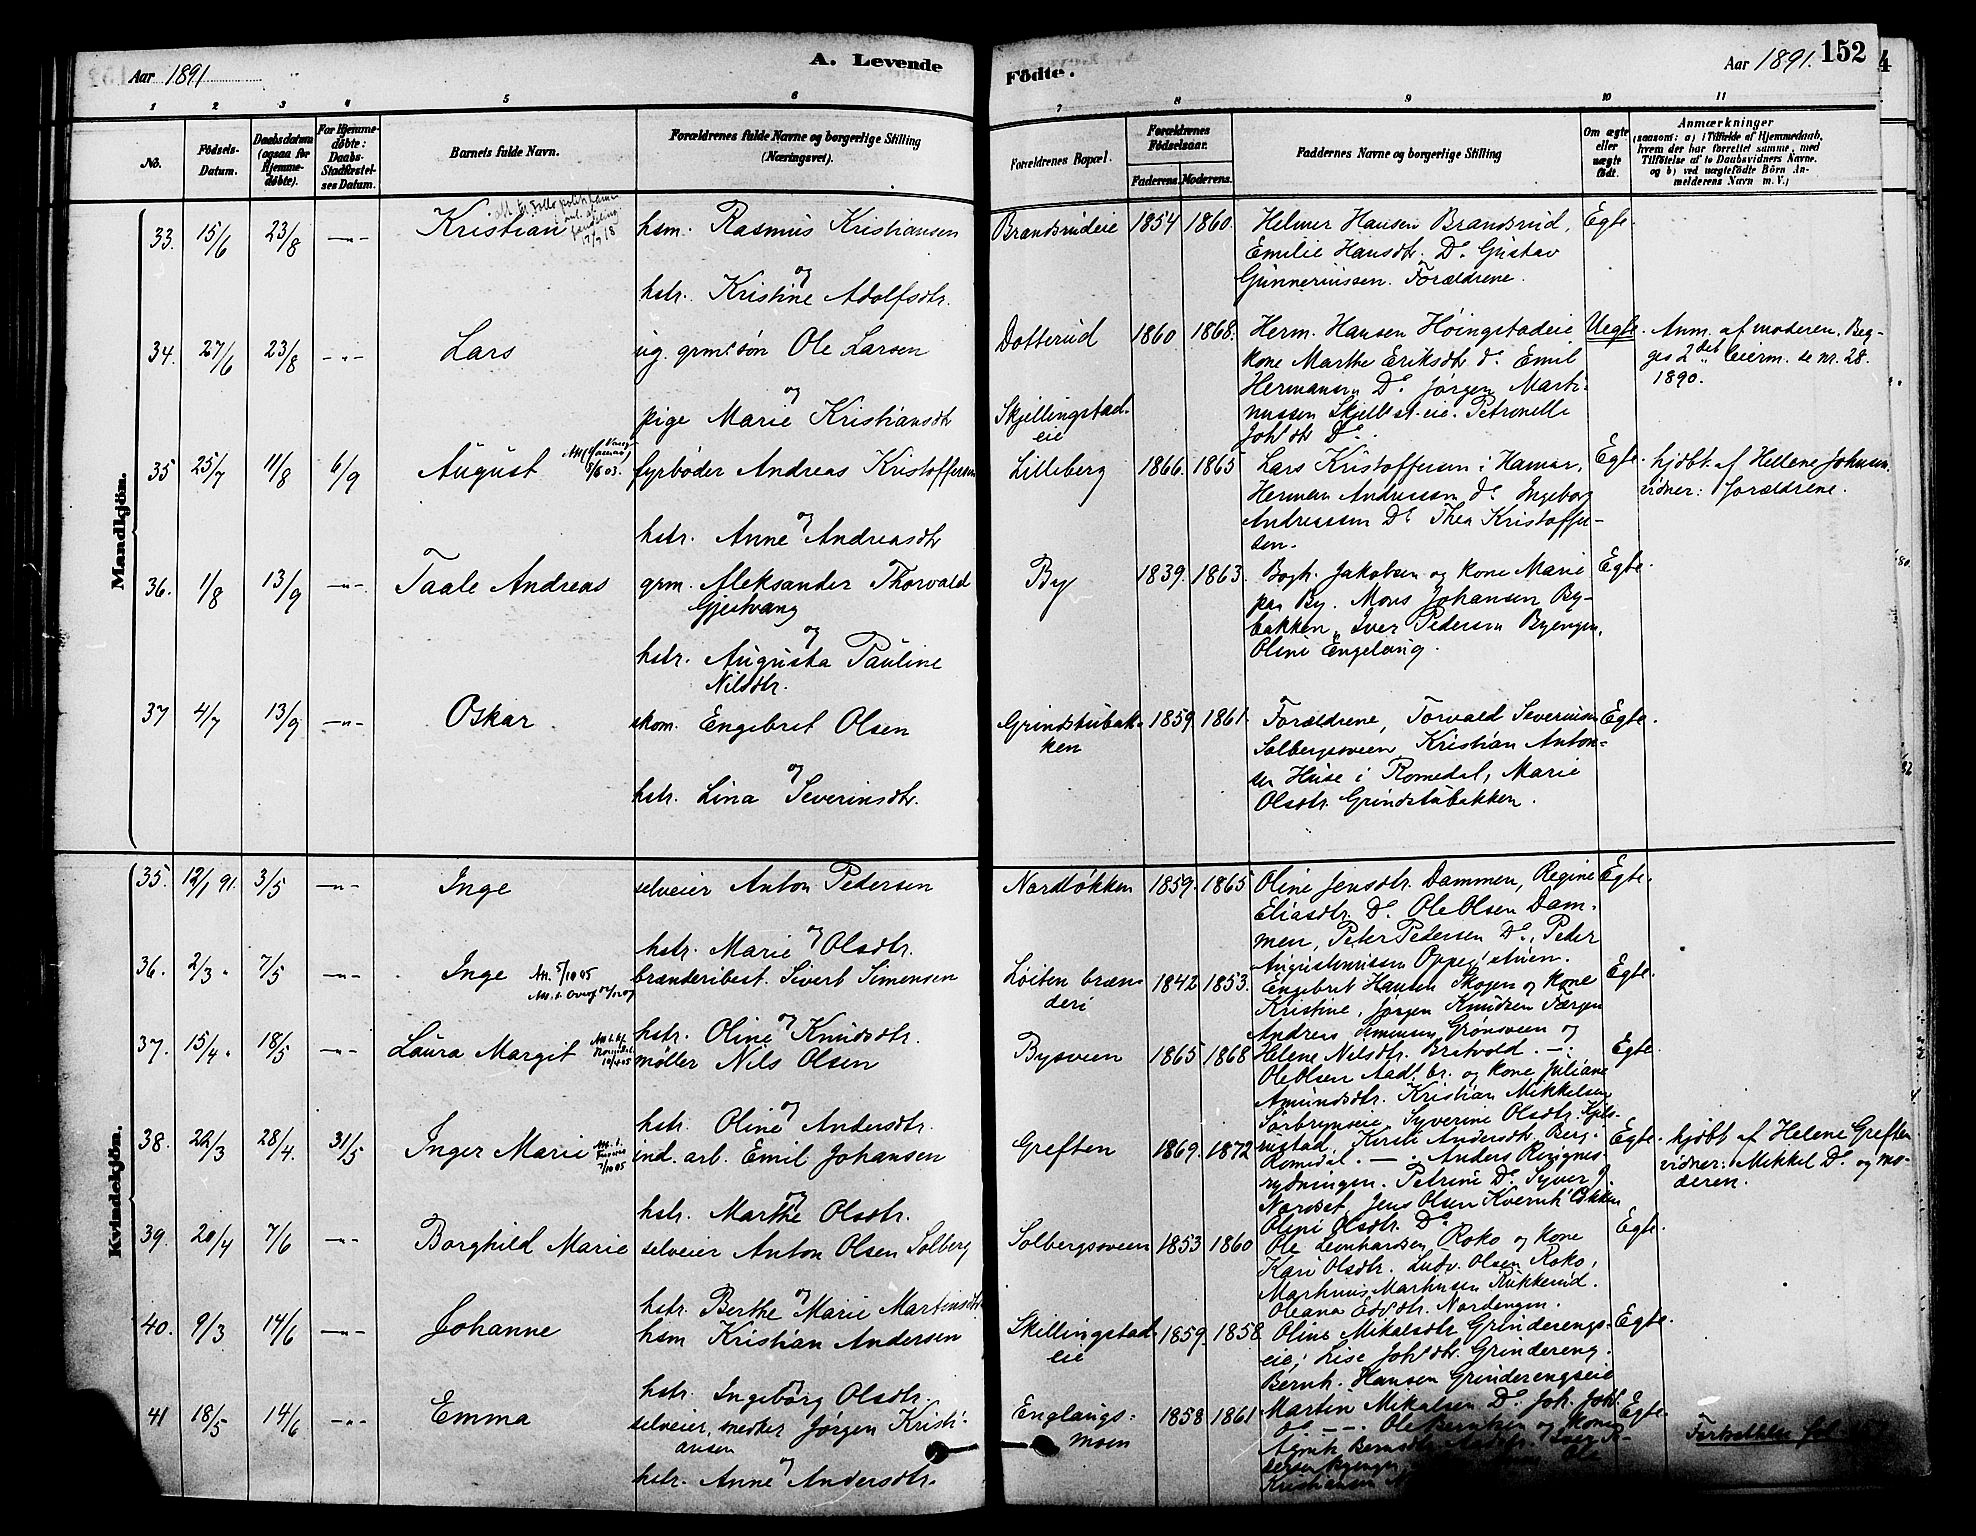 Aar 1891
A. Levende
Födte.
Aar 1891.
152
1 2 3 4 5 6 7 8 9 10 11
No.
Födsels-Datum.
Daabsdatum (ogsaa for Hjemme-døbte).
For Hjemme-døbte: Daabs-Stadfæstel-ses Datum.
Barnets fulde Navn.
Forældrenes fulde Navne og borgerlige Stilling (Næringsvei).
Forældrenes Bopæl.
Forældrenes Födselsaar.
Faderens. Moderens.
Faddernes Navne og borgerlige Stilling
Om ægte eller uægte født.
Anmærkninger
(saasom: a) i Tilfælde af Hjemmedaab, hvem der har forrettet samme, med Tilföielse af to Daabsvidners Navne. og b) ved uægtefödte Börn An-melderens Navn m. V.)
Mandkjön.
33. 15/6 23/8 -"- Kristian hsm. Rasmus Kristiansen
og
hstr. Kristine Adolfsdtr.
Brandsrudeie 1854 1860.
Helmer Hansen Brandsrud,
Emilie Hansdtr. Do. Gustav
Gunneriussen. Forældrene.
Egte.
34. 27/6 23/8 -"- Lars ug. grmdsøn Ole Larsen
og
pige Marie Kristiansdtr
Dotterud 1860 1868.
Skjellingstad-
eie
Herm. Hansen Høingstadeie
kone Marthe Eriksdtr do. Emil
Hermansen Do. Jørgen Marti-
nussen Skjellst.eie. Petronelle
Johsdtr Do.
Uegte.
Anm. af moderen. Beg-
ges 2det leierm. se nr. 28.
1890.
35 25/7 11/8 6/9 August fyrbøder Andreas Kristoffersen
og
hstr. Anne Andreasdtr
Lilleberg 1866. 1865
Lars Kristoffersen i Hamar,
Herman Andreassen do. Ingeborg
Andreassen Do. Thea Kristoffer-
sen.
Egte.
hjdbt. af Hellene Johnsen
vidner: forældrene.
36. 1/8 13/9 -"- Taale Andreas grm. Aleksander Thorvald
Gjestvang
og
hstr. Augusta Pauline
Nilsdtr.
By 1839. 1863.
Bogh. Jakobsen og kone Marie
paa By. Mons Johansen By-
bakken, Iver Pedersen Byengen,
Oline Engelaug.
Egte.
37 4/7 13/9 -"- Oskar skom. Engebret Olsen
og
hstr. Lina Severinsdtr.
Grindstubak-
ken 1859. 1861.
Forældrene, Torvald Severinsen
Solbergsveien, Kristian Anton-
sen Huse i Romedal, Marie
Olsdtr. Grindstubakken.
Egte.
Kvindekjön.
35. 12/1 91. 3/5 -"- Inge selveier Anton Pedersen
og
hstr. Marie Olsdtr.
Nordløkken 1859. 1865
Oline Jensdtr. Dammen, Regine
Eliasdtr. Do. Ole Olsen Dam-
men, Peter Pedersen Do., Peder
Augustinussen Oppegstuen.
Egte.
36. 2/3 " 7/5 -"- Inge brænderibest. Sivert Simensen
og
hstr. Oline Knudsdtr.
Løiten bræn-
deri 1842 1853.
Engebret Hansen Skogen og kone
Kristine, Jørgen Knudsen Færgen
Andreas Simensen Grønsveen og
Helene Nilsdtr. Bratvold.
Egte.
37. 15/4 " 18/5 -"- Laura Margit møller Nils Olsen
og
hstr. Oline Andersdtr.
Bysveen 1865 1868
Ole Olsen Aadl.br. og kone Juliane
Amundsdtr. Kristian Mikkelsen
Sørbryneie, Syverine Olsdtr.
Kirsti Andersdtr. Berg.
Romedal.
Egte.
38. 22/3 28/4. 31/5 Inger Marie ind. arb. Emil Johansen
og
hstr. Marthe Olsdtr.
Greften 1869. 1872
Anders Ringnes-
rydningen. Petrine Do. Syver J.
Nordset, Jens Olsen Kvernh.bakken
Oline Olsdtr. Do.
Egte.
hjdbt af Helene Greften
vidner: Mikkel Do. og mo-
deren.
39. 20/4 7/6 -"- Borghild Marie selveier Anton Olsen Solberg
og
hstr. Berthe Marie Martinsdtr.
Solbergsveen 1853 1860
Ole Leonhardsen Roko og kone
Kari Olsdtr. Ludv. Olsen Roko,
Markus Markusen Rukkerud.
Oleana Edvdtr. Nordengen.
Egte.
40. 9/3 14/6 -"- Johanne hsm Kristian Andersen
og
hstr. Ingeborg Olsdtr.
Skillingstad-
eie 1859. 1858
Oline Mikalsdtr. Grinderengs-
eie, Lise Johsdtr. Grindereng.
Bernh. Hansen Grinderengseie
Martin Mikalsen Do.
Egte.
41 18/5 14/6 -"- Emma selveier, snedker Jørgen Kristi-
ansen
og
hstr. Anne Andersdtr.
Englaugs-
moen 1858 1861
Ole Berntsen og kone
Kristiansen
Egte.
Fortsættelse fol.